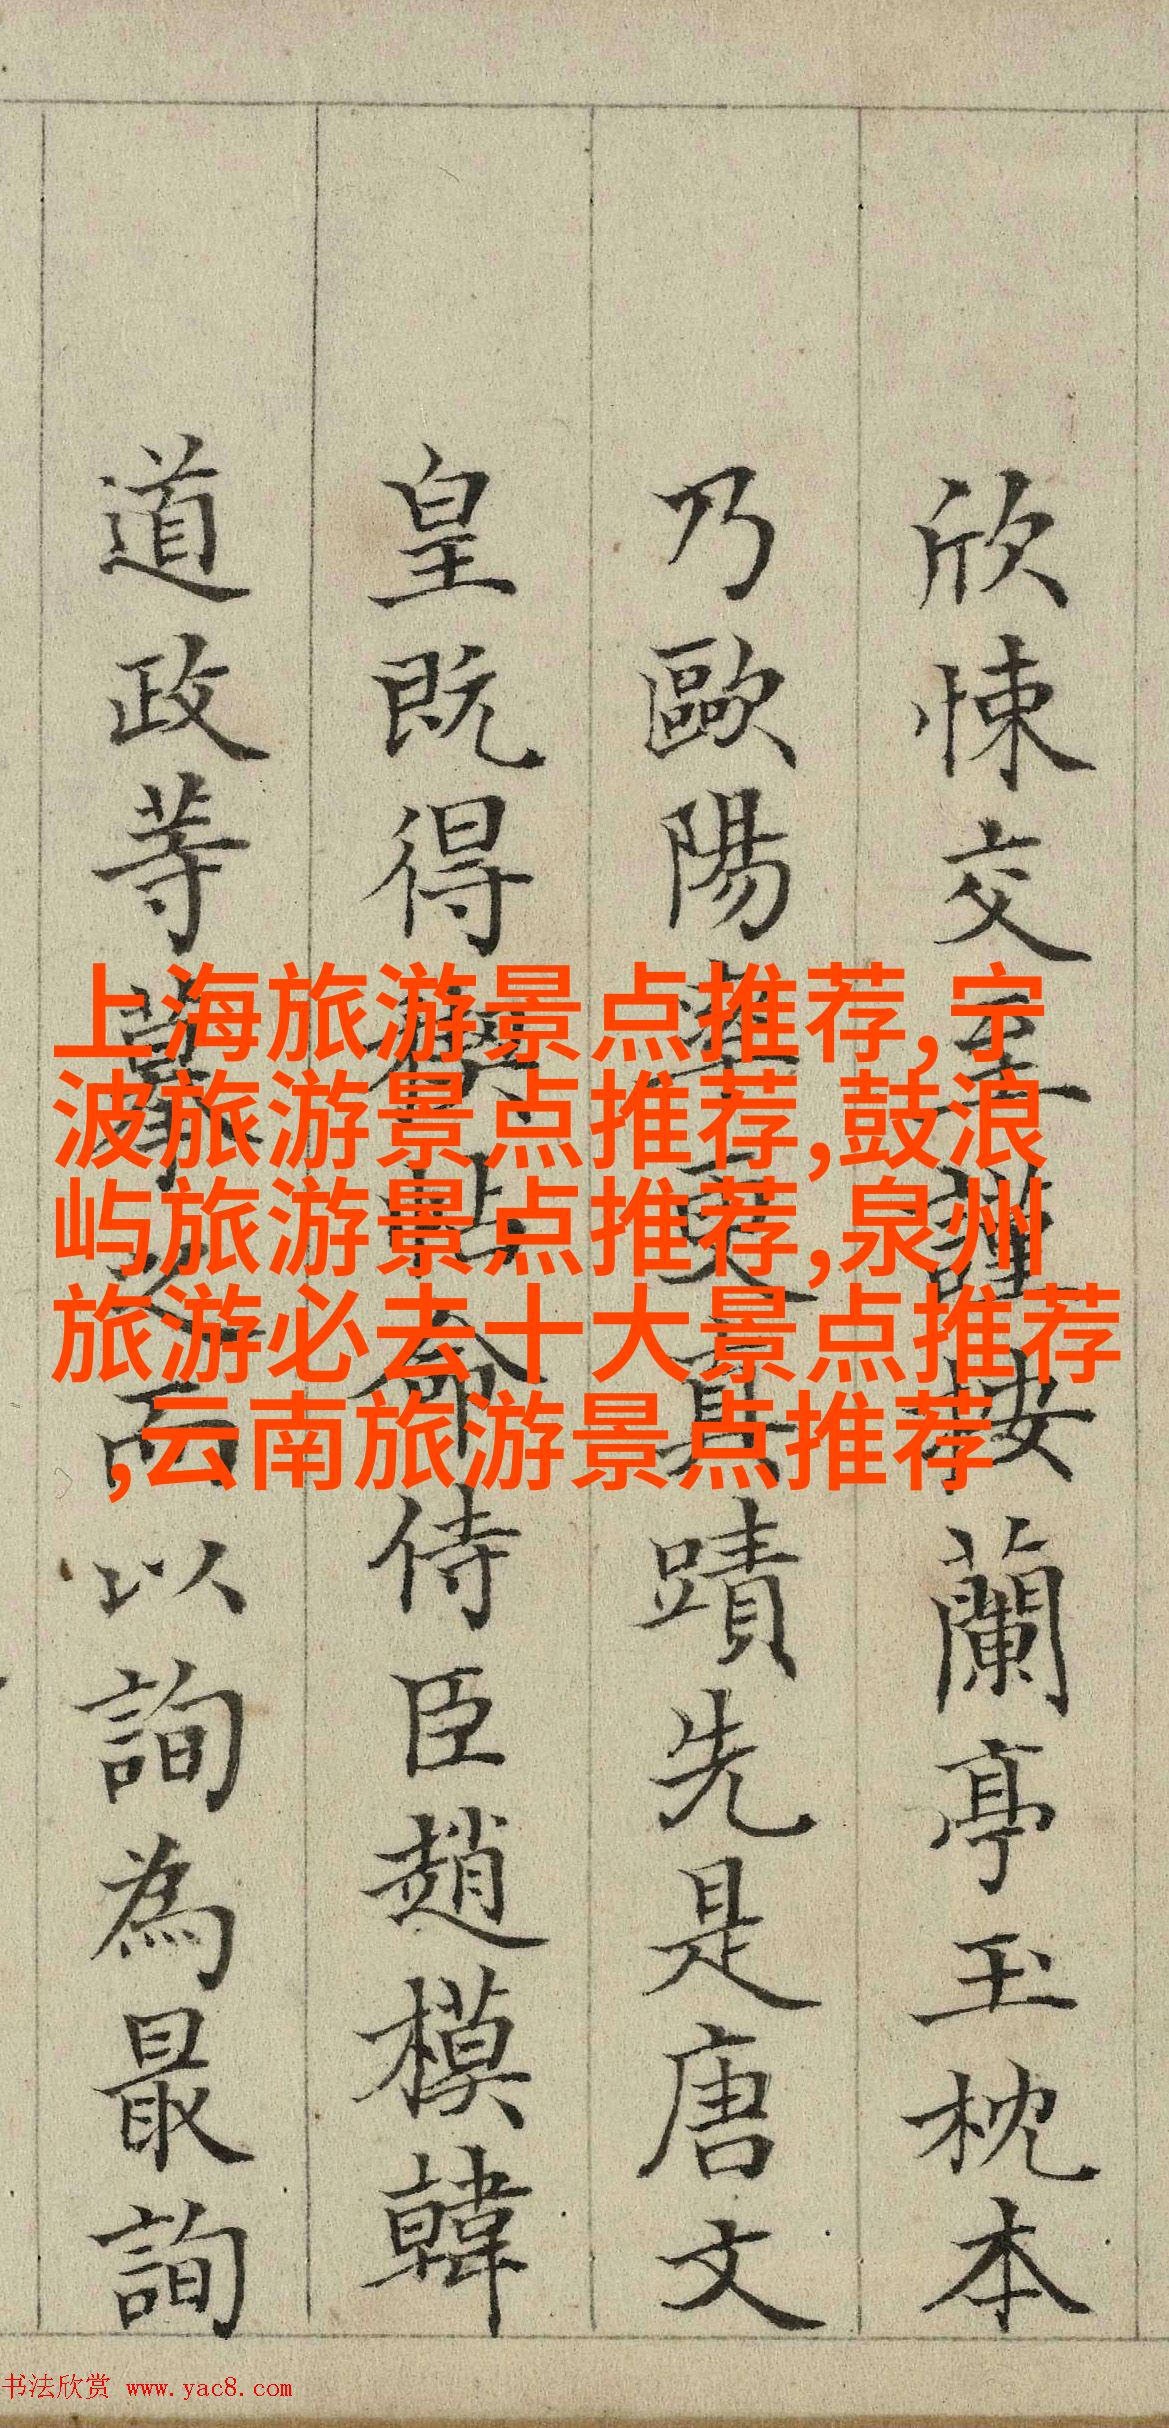 欣悚交至謹按蘭亭玉枕本
乃歐陽率更真蹟先是唐文
皇既得禊帖命侍臣趙模韓
道政等摹之而以詢為最詢
上海旅游景点推荐,宁
波旅游景点推荐,鼓浪
屿旅游景点推荐,泉州
旅游必去十大景点推荐
,云南旅游景点推荐
书法欣赏 www.yac8.com